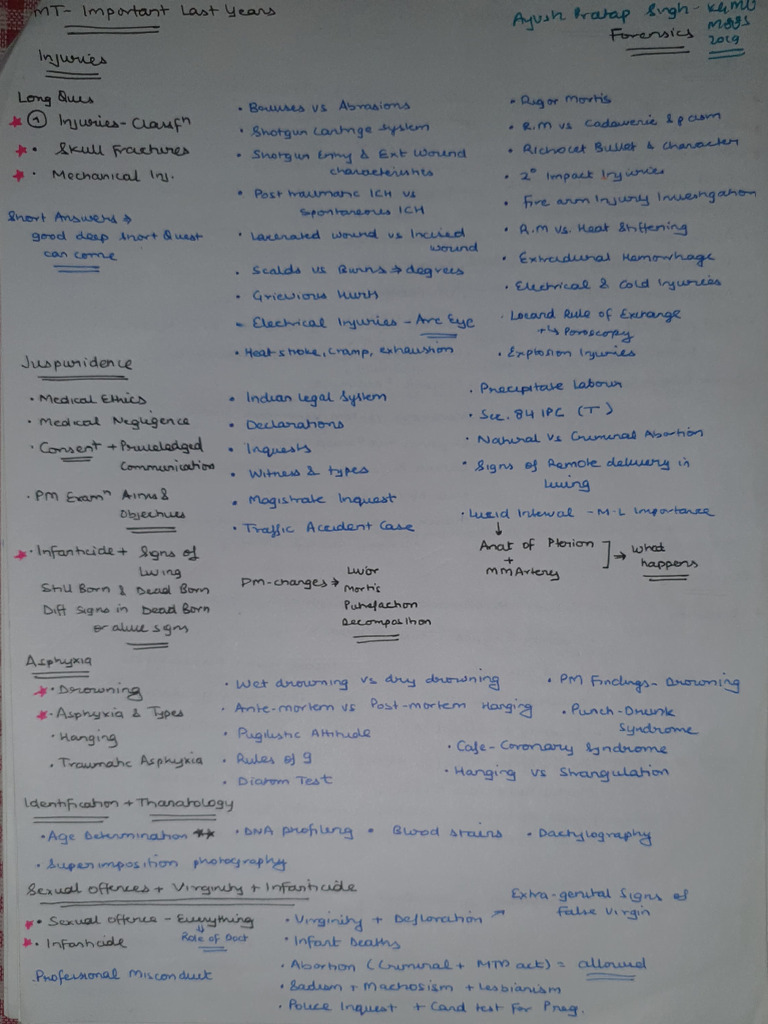 MT- Important Last Years
Ayush Pratap Singh - KGMU
MBBS
2019
Forensics
Injuries
Long Ques
① Injuries- Classfⁿ
• Skull Fractures
• Mechanical Inj.
Short Answers →
good deep short Quest
can come
• Bruises vs Abrasions
• Shotgun Cartrige System
• Shotgun Entry & Exit Wound
characteristics
• Post traumatic ICH vs
Spontaneous ICH
• Lacerated wound vs Incised
wound
• Scalds vs Burns → degrees
• Grievious Hurts
• Electrical Injuries - Arc Eye
• Heat stroke, cramp, exhaustion
• Rigor Mortis
• R.M vs Cadaveric Spasm
• Richocet Bullet & character
• 2° Impact Injuries
• Fire arm Injury Investigation
• R.M vs. Heat Stiffening
• Extradural Hemorrhage
• Electrical & Cold Injuries
• Locard Rule of Exchange
+ ↳ Poroscopy
• Explosion Injuries
Juspuridence
• Medical Ethics
• Medical Negligence
• Consent + Priveledged
Communication
• PM Examⁿ Aims &
Objectives
• Infanticide + Signs of
Living
Still Born & Dead Born
Diff Signs in Dead Born
or alive signs
• Indian legal System
• Declarations
• Inquests
• Witness & types
• Magistrate Inquest
• Traffic Accident Case
PM-changes → Livor
Mortis
Putrefaction
Decomposition
• Precipitate Labour
• Sec. 84 IPC (T)
• Natural vs Criminal Abortion
• Signs of Remote delivery in
living
• Lucid Interval - M.L Importance
↓
Anat of Pterion
+
MM Artery
→ What
happens
Asphyxia
• Drowning
• Asphyxia & Types
• Hanging
• Traumatic Asphyxia
• Wet drowning vs dry drowning
• Ante-mortem vs Post-mortem Hanging
• Pugilistic Attitude
• Rules of 9
• Diatom Test
• PM Findings- Drowning
• Punch-Drunk
Syndrome
• Cafe-Coronary Syndrome
• Hanging vs Strangulation
Identification + Thanatology
• Age Determination ** • DNA profiling • Blood stains • Dactylography
• Superimposition photography
Sexual Offences + Virginity + Infanticide
• Sexual Offence - Everything
Role of Doct
• Infanticide
Professional Misconduct
• Virginity + Defloration → Extra-genital Signs of
False Virgin
• Infant Deaths
• Abortion (Criminal + MTP act) = allowed
• Sadism + Machosism + Lesbianism
• Police Inquest + Card test For Preg.